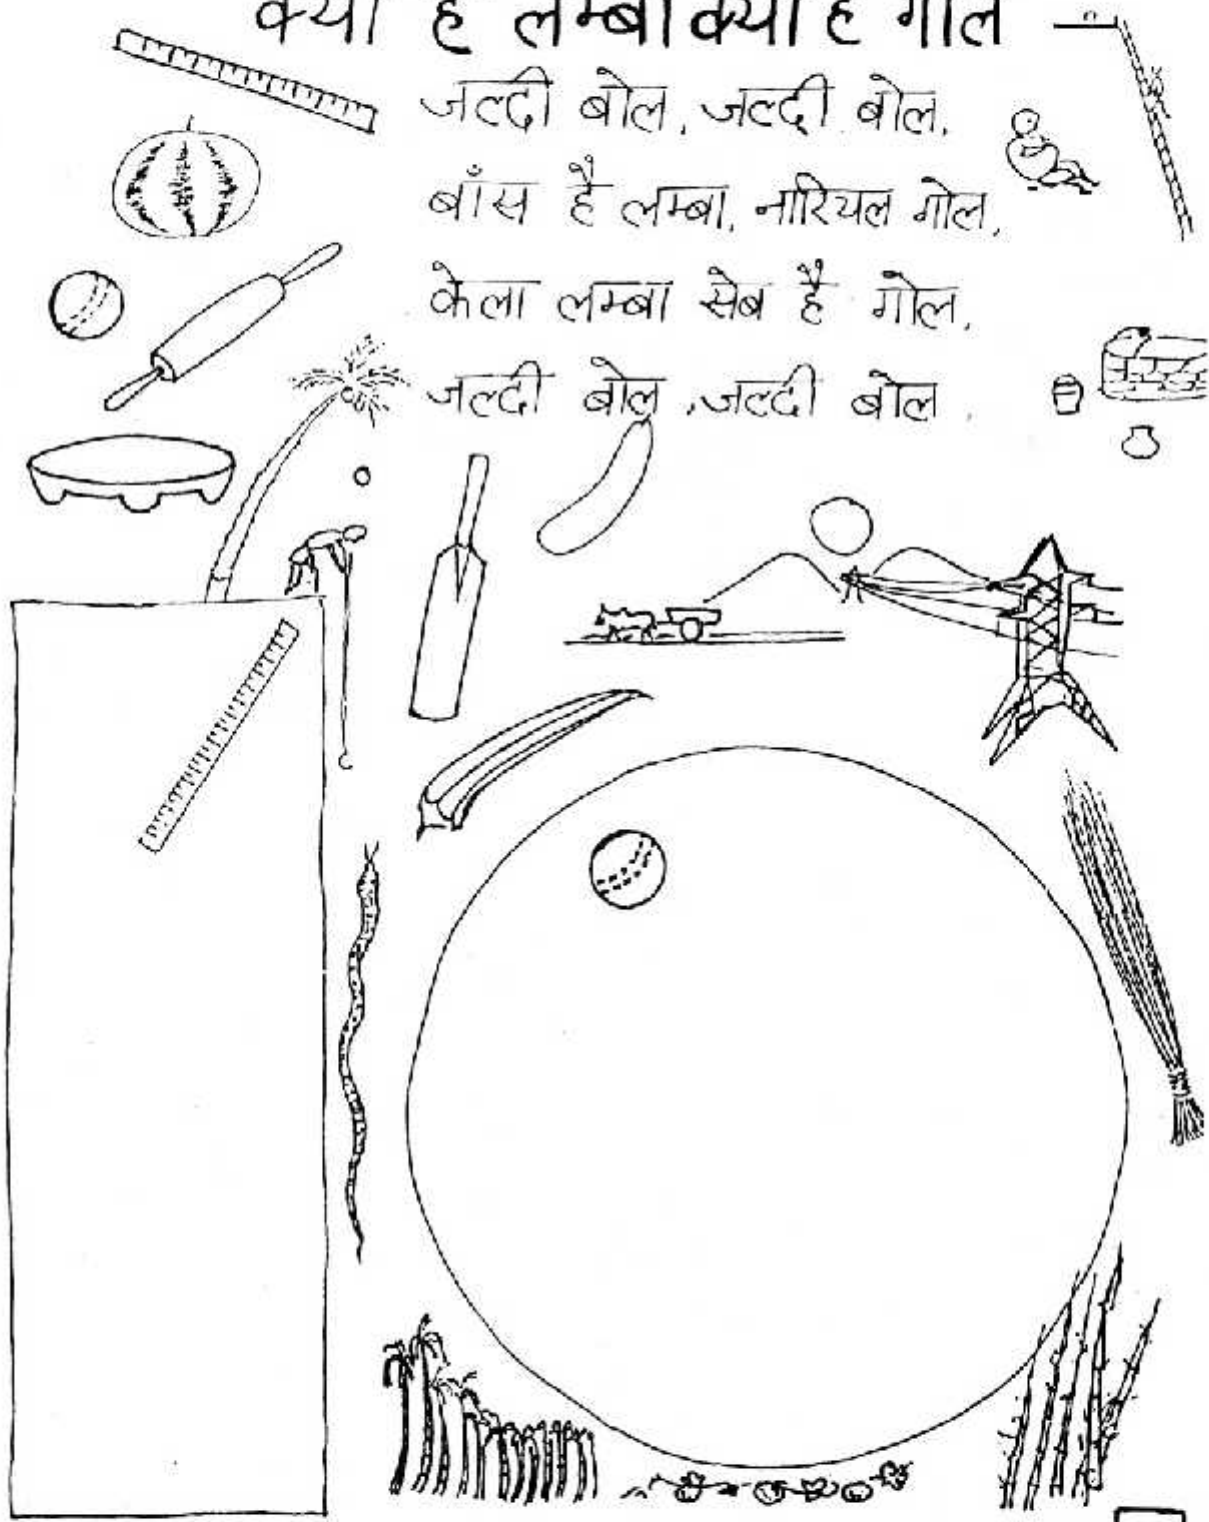 क्या है लम्बा क्या है गोल
जल्दी बोल, जल्दी बोल,
बाँस है लम्बा, नारियल गोल,
केला लम्बा सेब है गोल,
जल्दी बोल, जल्दी बोल.